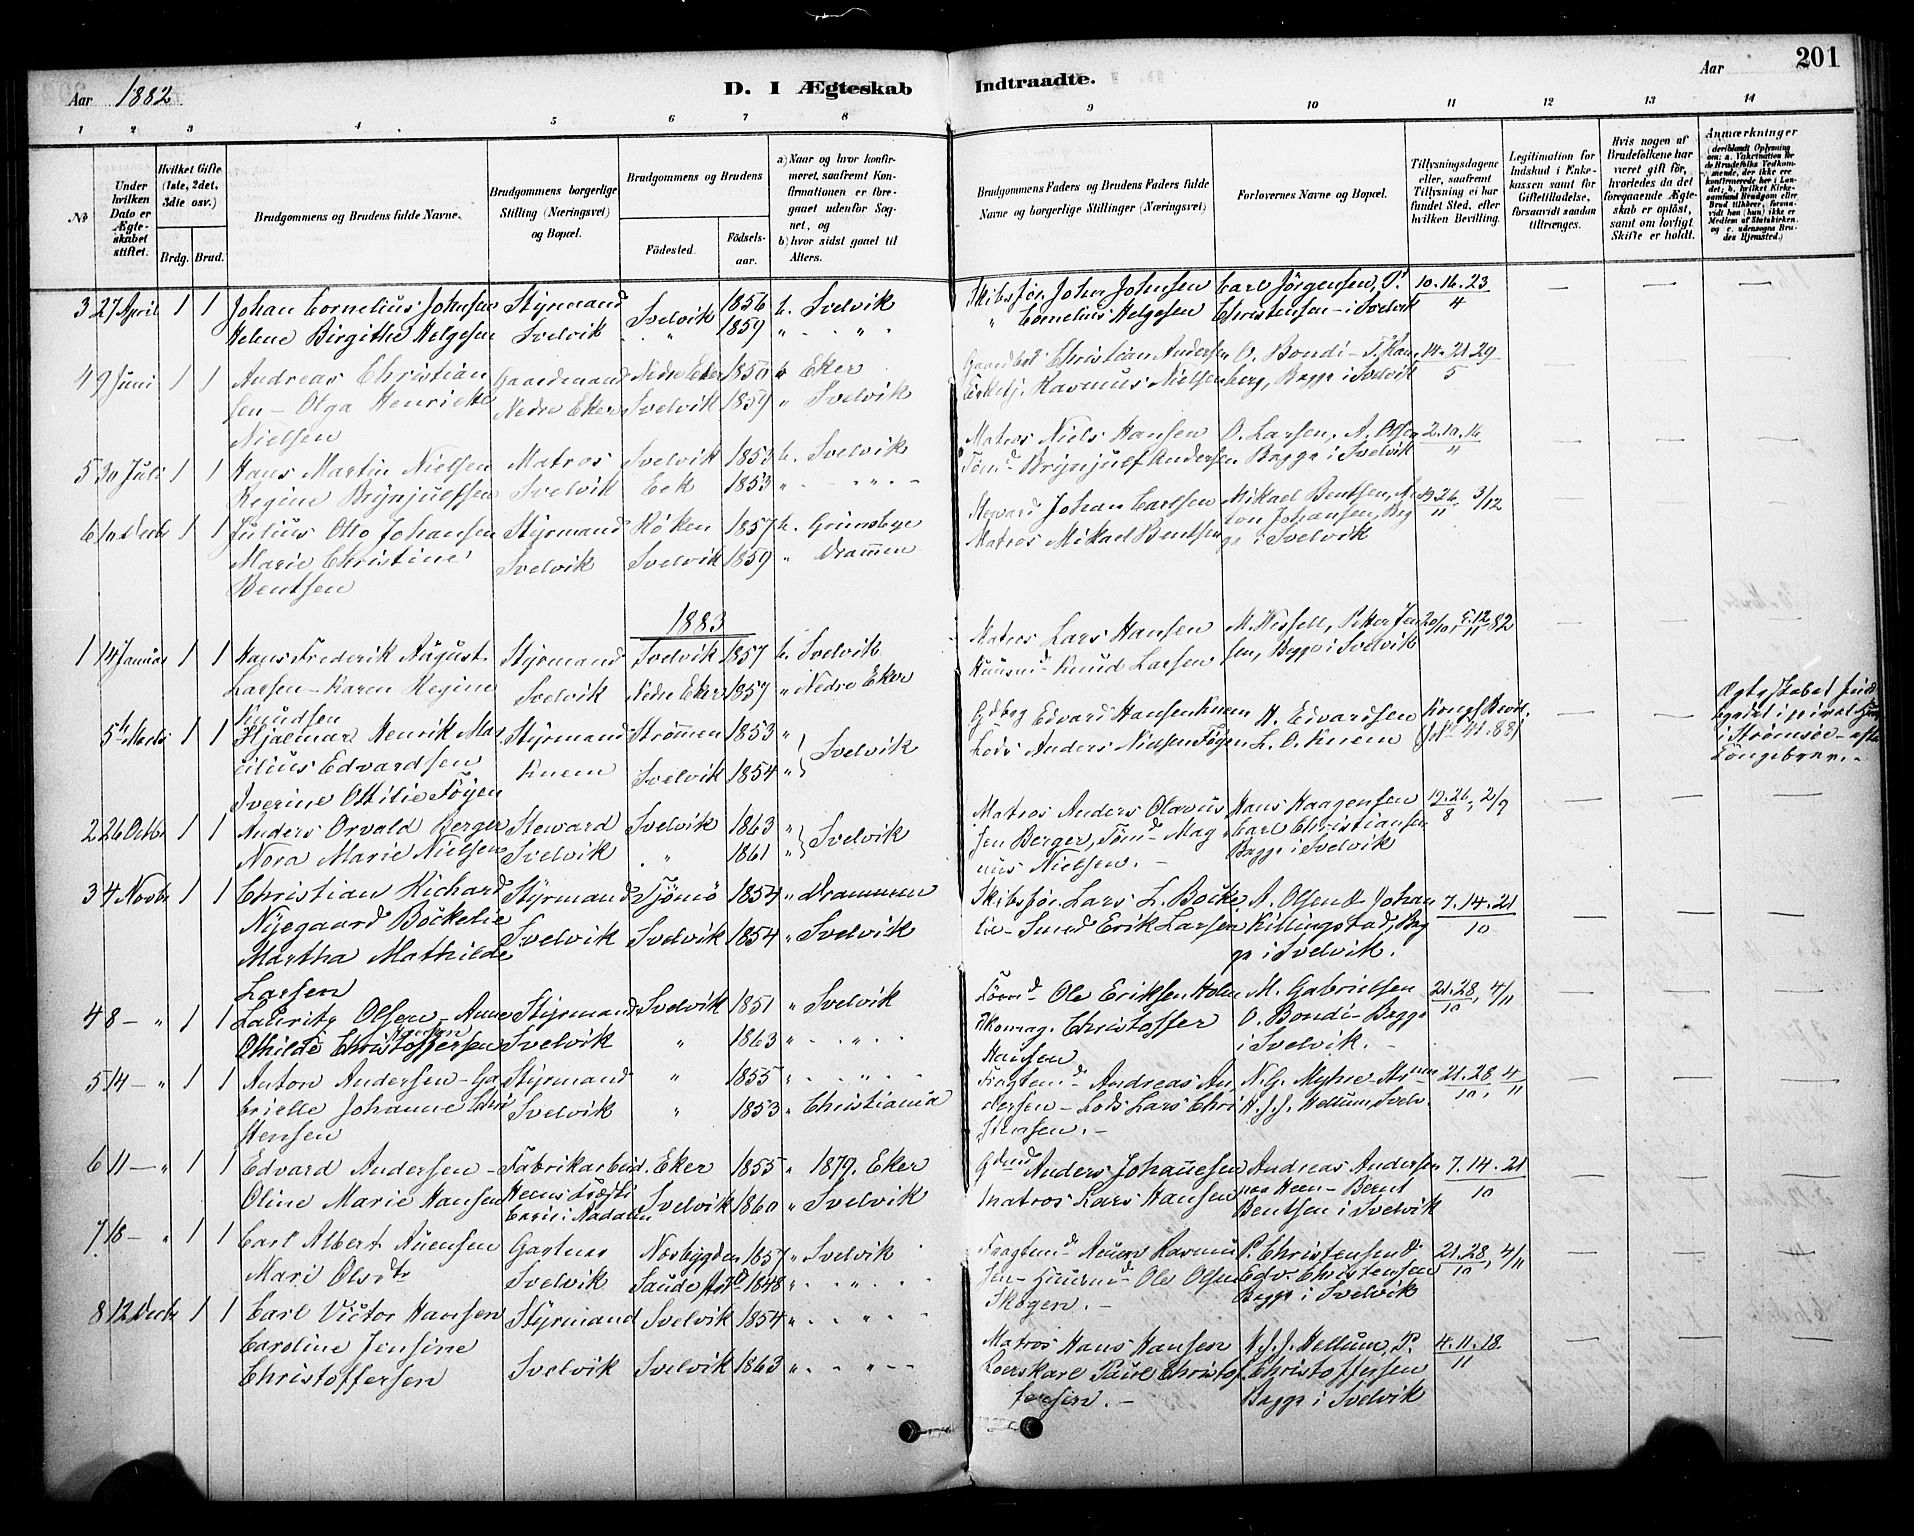 Aar 1882. D. I Ægteskab Indtraadte. Aar 201
1 2 3 4 5 6 7 8 9 10 11 12 13 14
№
Under hvilken Dato er Ægteskabet stiftet.
Hvilket Gifte (1ste, 2det, 3die osv.)
Brdg. Brud.
Brudgommens og Brudens fulde Navne.
Brudgommens borgerlige Stilling (Næringsvei) og Bopæl.
Brudgommens og Brudens
Fødested. Fødselsaar.
a) Naar og hvor konfirmeret, saafremt Konfirmationen er foregaaet udenfor Sognet, og
b) hvor sidst gaaet til Alters.
Brudgommens Faders og Brudens Faders fulde Navne og borgerlige Stillinger (Næringsvei)
Forlovernes Navne og Bopæl.
Tillysningsdagene eller, saafremt Tillysning ei har fundet Sted, efter hvilken Bevilling.
Legitimation for Indskud i Enkekassen samt for Giftetilladelse, forsaavidt saadan tiltrænges.
Hvis nogen af Brudefolkene har været gift før, hvorledes da det foregaaende Ægteskab er opløst, samt om lovligt Skifte er holdt.
Anmærkninger
3 27 April 1 1 Johan Cornelius Johnsen Styrmand Svelvik 1856 b. Svelvik Skibsfør. Johan Johnsen Carl Jörgensen, P. 10. 16. 23
Helene Birgithe Helgesen Svelvik " 1859 " " " Cornelius Helgesen Christensen - i Svelvik 4
4 9 Juni 1 1 Andreas Christian Gaardmand Nedre Eker 1850 b. Eker Christian Andersen O. Bondi - T. 14. 21 29
sen - Olga Henriette Nedre Eker Svelvik 1859 " Svelvik Rasmus Nielsen berg, Begge i Svelvik 5
Nielsen
5 30 Juli 1 1 Hans Martin Nielsen Matros Svelvik 1853 b. Svelvik Matros Niels Hansen O. Larsen, A. Olsen 2. 10. 16
Regine Brynjulfsen Svelvik Eek 1853 " " " Tömd Brynjulf Andersen Begge i Svelvik 4
6 10 Decbr 1 1 Julius Otto Johansen Styrmand Röken 1857 b. Grimsbye Steward Johan Carlsen Mikael Bentsen, An 19 26 3/12
Marie Christine Svelvik Svelvik 1859 " Drammen Matros Mikael Bentsen ton Johansen, Beg 11
Bentsen ge i Svelvik
1883
1 14 Januar 1 1 Hans Frederik August Styrmand Svelvik 1857 b. Svelvik Matros Lars Hansen M. Wessell, Petter Jen 20/10, 5. 12 82
Larsen - Karen Regine Svelvik Nedre Eker 1857 " Nedre Eker Huusmd Knud Larsen sen, Begge i Svelvik 11
Knudsen
5te Marts 1 1 Hjalmar Henrik Ma Styrmand Strömmen 1853 " Svelvik Edvard Hansen Knem H. Edvardsen Kongl. Bevil.
cilius Edvardsen Knem Svelvik 1854 " Lods Anders Nielsen Föyen L. O. Knem
Iverine Ottilie Föyen
2 26 Octbr 1 1 Anders Orvald Berger Steward Svelvik 1863 " Svelvik Matros Anders Olavus Hans Haagensen 19. 26, 2/9
Nora Marie Nielsen Svelvik " 1861 " sen Berger, Tömd Mag Carl Christiansen 8
nus Nielsen. - Begge i Svelvik
3 4 Novbr 1 1 Christian Richard Styrmand Tjömö 1854 " Drammen Skibsför. Lars L. Böcke A. Olsen & Johan 7. 14. 21
Nyegaard Böckelie Svelvik Svelvik 1854 " Svelvik lie - Smed Erik Larsen Killingstad, Beg 10
Martha Mathilde ge i Svelvik.
Larsen
4 8 - " 1 1 Lauritz Olsen - Anne Styrmand Svelvik 1851 " Svelvik Ole Eriksen Holm M. Gabrielsen 21. 28, 4/11
Othilde Christoffersen Hansen Svelvik " 1863 " " Skomag. Christoffer O. Bondi - Begge 10
Hansen i Svelvik. -
5 14 - " 1 1 Anton Andersen - Ga Styrmand " 1855 " " Fragtemd Andreas An N. G. Myhre 21. 28, 4
brielle Johanne Chri Svelvik " 1853 " Christiania dersen - Lods Lars Chri H. J. J. Hellum, Svelv. 10, 11
stensen stensen. -
6 11 - " 1 1 Edvard Andersen - Fabrikarbeid. Eker 1855 " 1879. Eker Anders Johannesen Andreas Andersen 7. 14. 21
Oline Marie Hansen Svelvik 1860 " Svelvik Matros Lars Hansen Heen - Bernt 10
Bentsen i Svelvik
7 18 - " 1 1 Carl Albert Auensen Gartner Nesbygden 1857 " Svelvik Fragtemd Auen Rasmus P. Christensen & 21. 28, 4/11
Mari Olsdtr Svelvik Saude 1848 " " sen - Huusmd Ole Olsen Edv. Christensen 10
Skogen. - Begge i Svelvik
8 12 Decbr 1 1 Carl Victor Hansen Styrmand Svelvik 1854 " " Matros Hans Hansen H. J. J. Hellum, P. 4. 11. 18
Caroline Jensine Svelvik Svelvik 1863 " " Roerskarl Paul Christof Christoffersen 11
Christoffersen fersen. - Begge i Svelvik